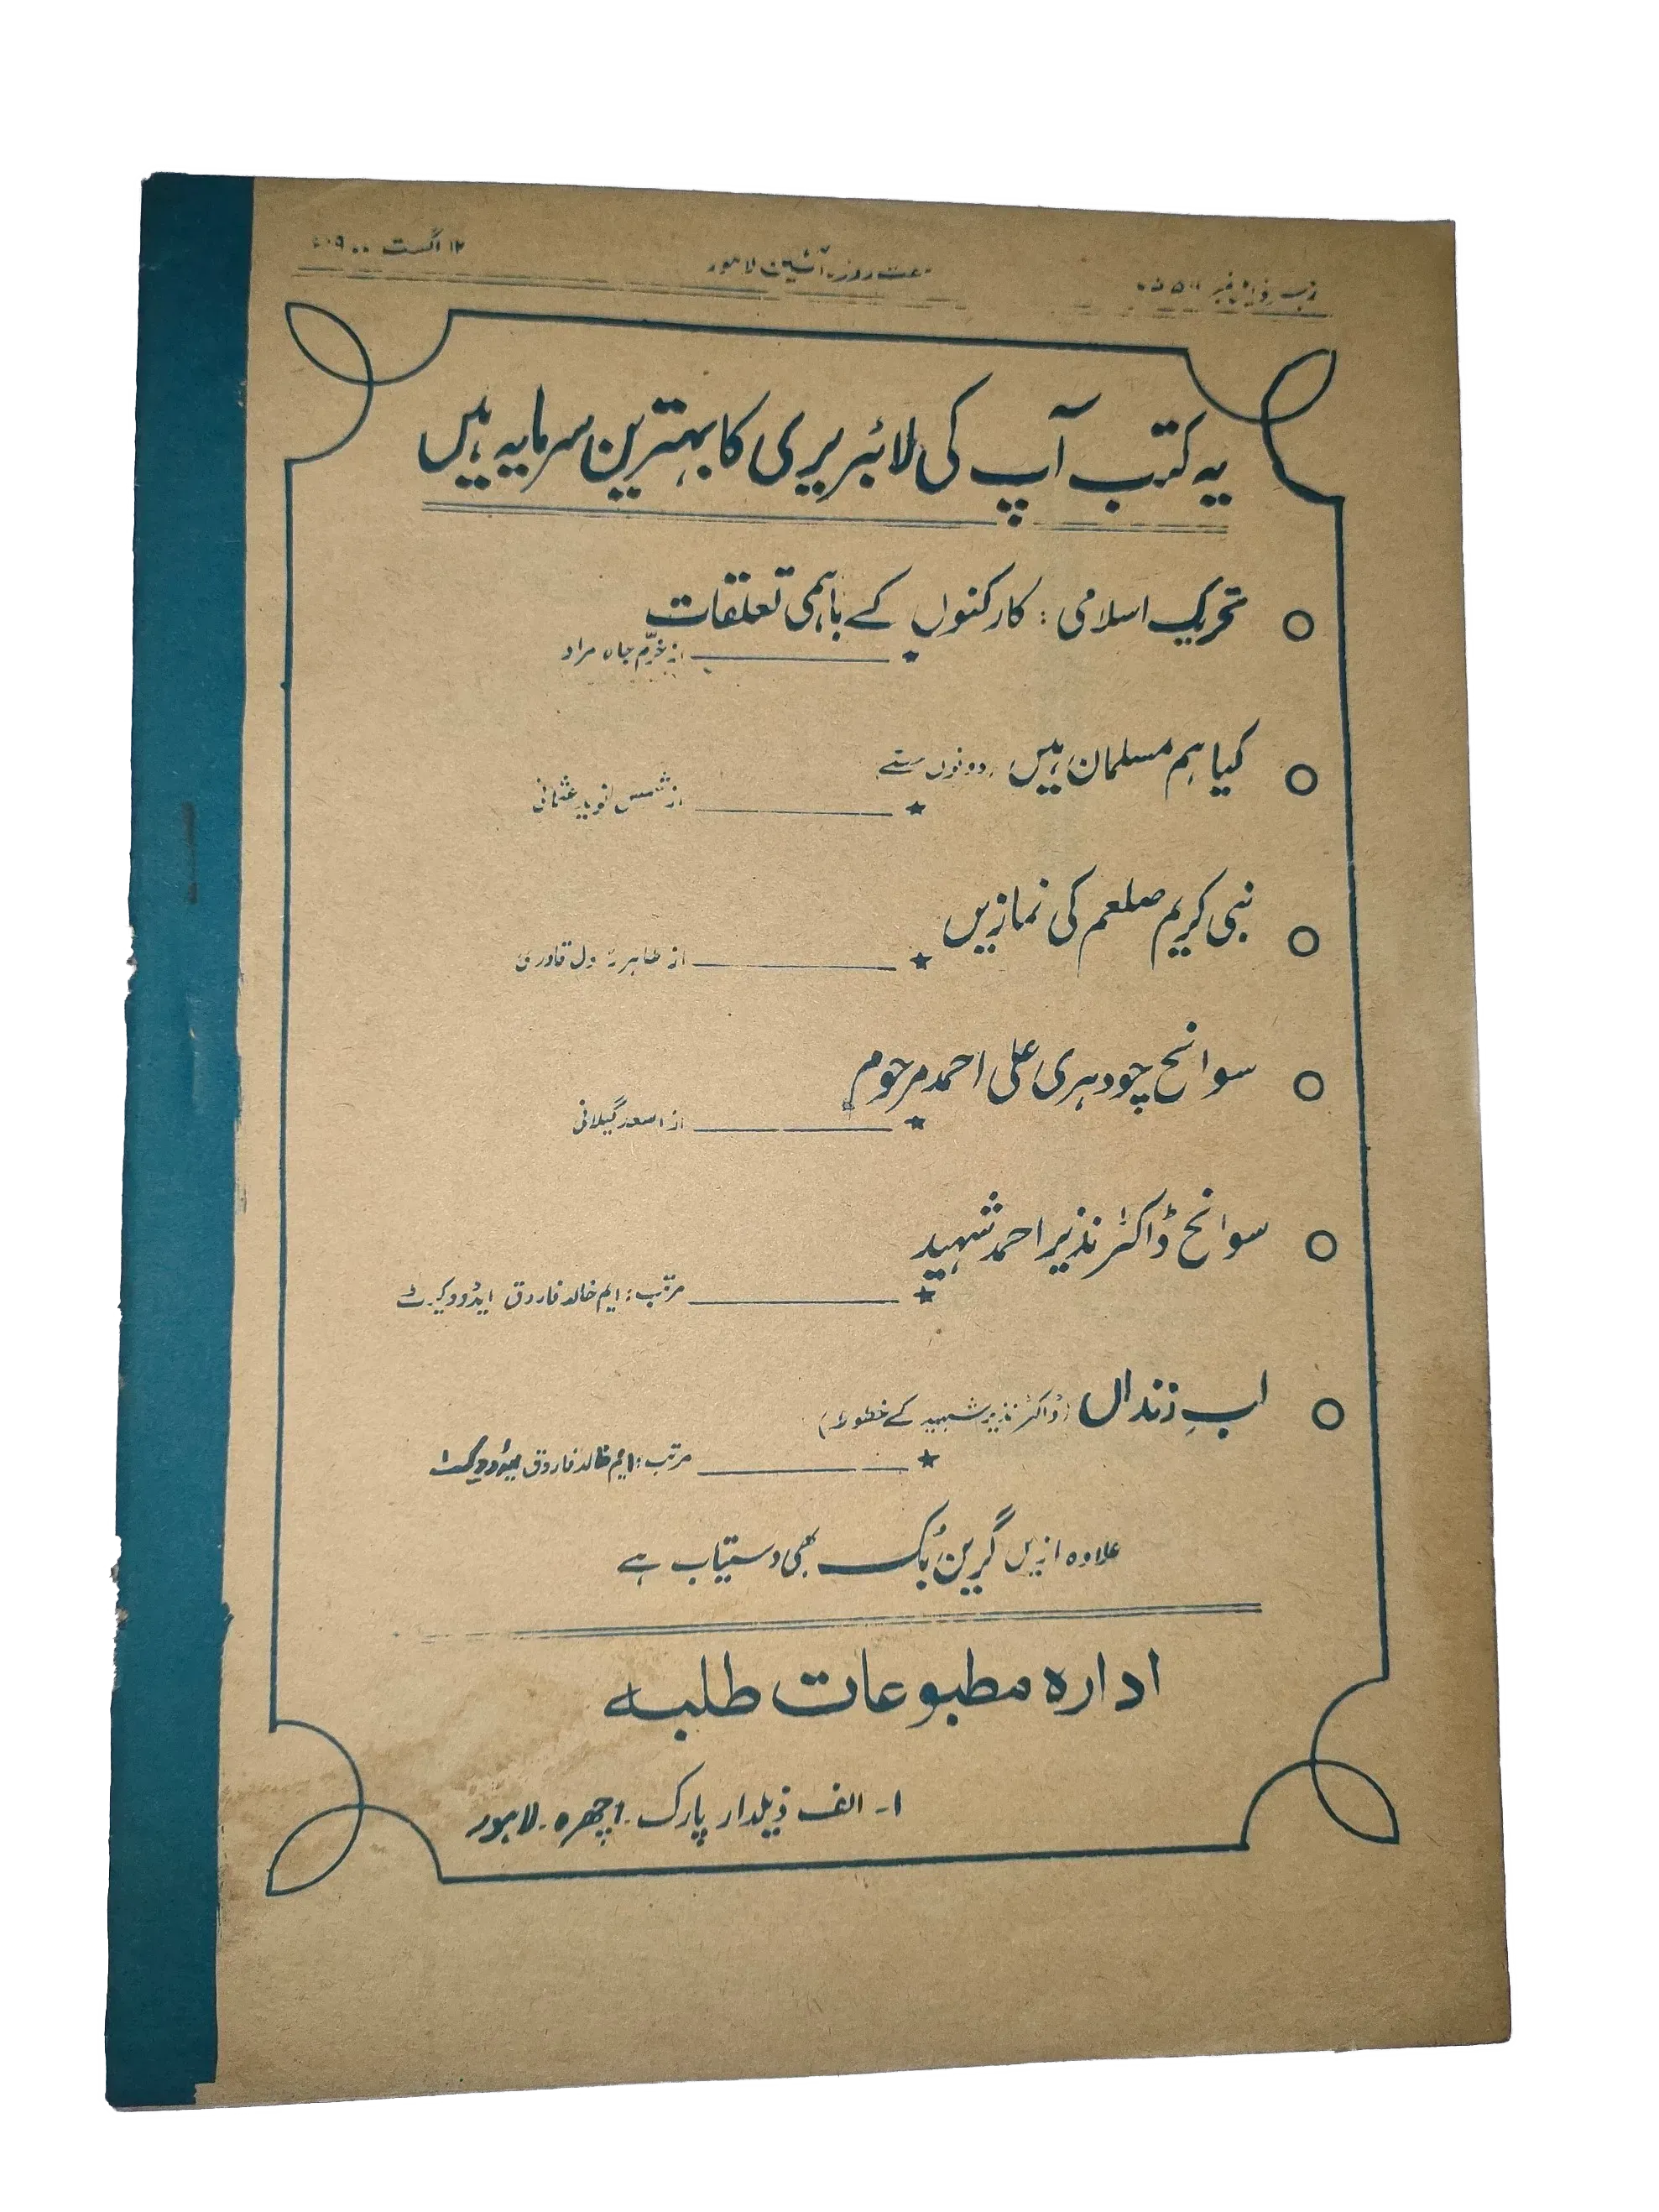 ۱۲ اگست
لاہور
یہ کتب آپ کی لائبریری کا بہترین سرمایہ ہیں
تحریک اسلامی : کارکنوں کے باہمی تعلقات
از خرّم جاہ مراد
کیا ہم مسلمان ہیں (دونوں حصے)
از شمس نوید عثمانی
نبی کریم صلعم کی نمازیں
از طاہر رسول قادری
سوانح چودہری علی احمد مرحوم
از اسعد گیلانی
سوانح ڈاکٹر نذیر احمد شہید
مرتب : ایم خالد فاروق ایڈووکیٹ
لبِ زنداں (ڈاکٹر نذیر شہید کے خطوط)
مرتب : ایم خالد فاروق ایڈووکیٹ
علاوہ ازیں گرین بُک بھی دستیاب ہے
ادارہ مطبوعات طلبہ
۱- الف ذیلدار پارک - اچھرہ - لاہور